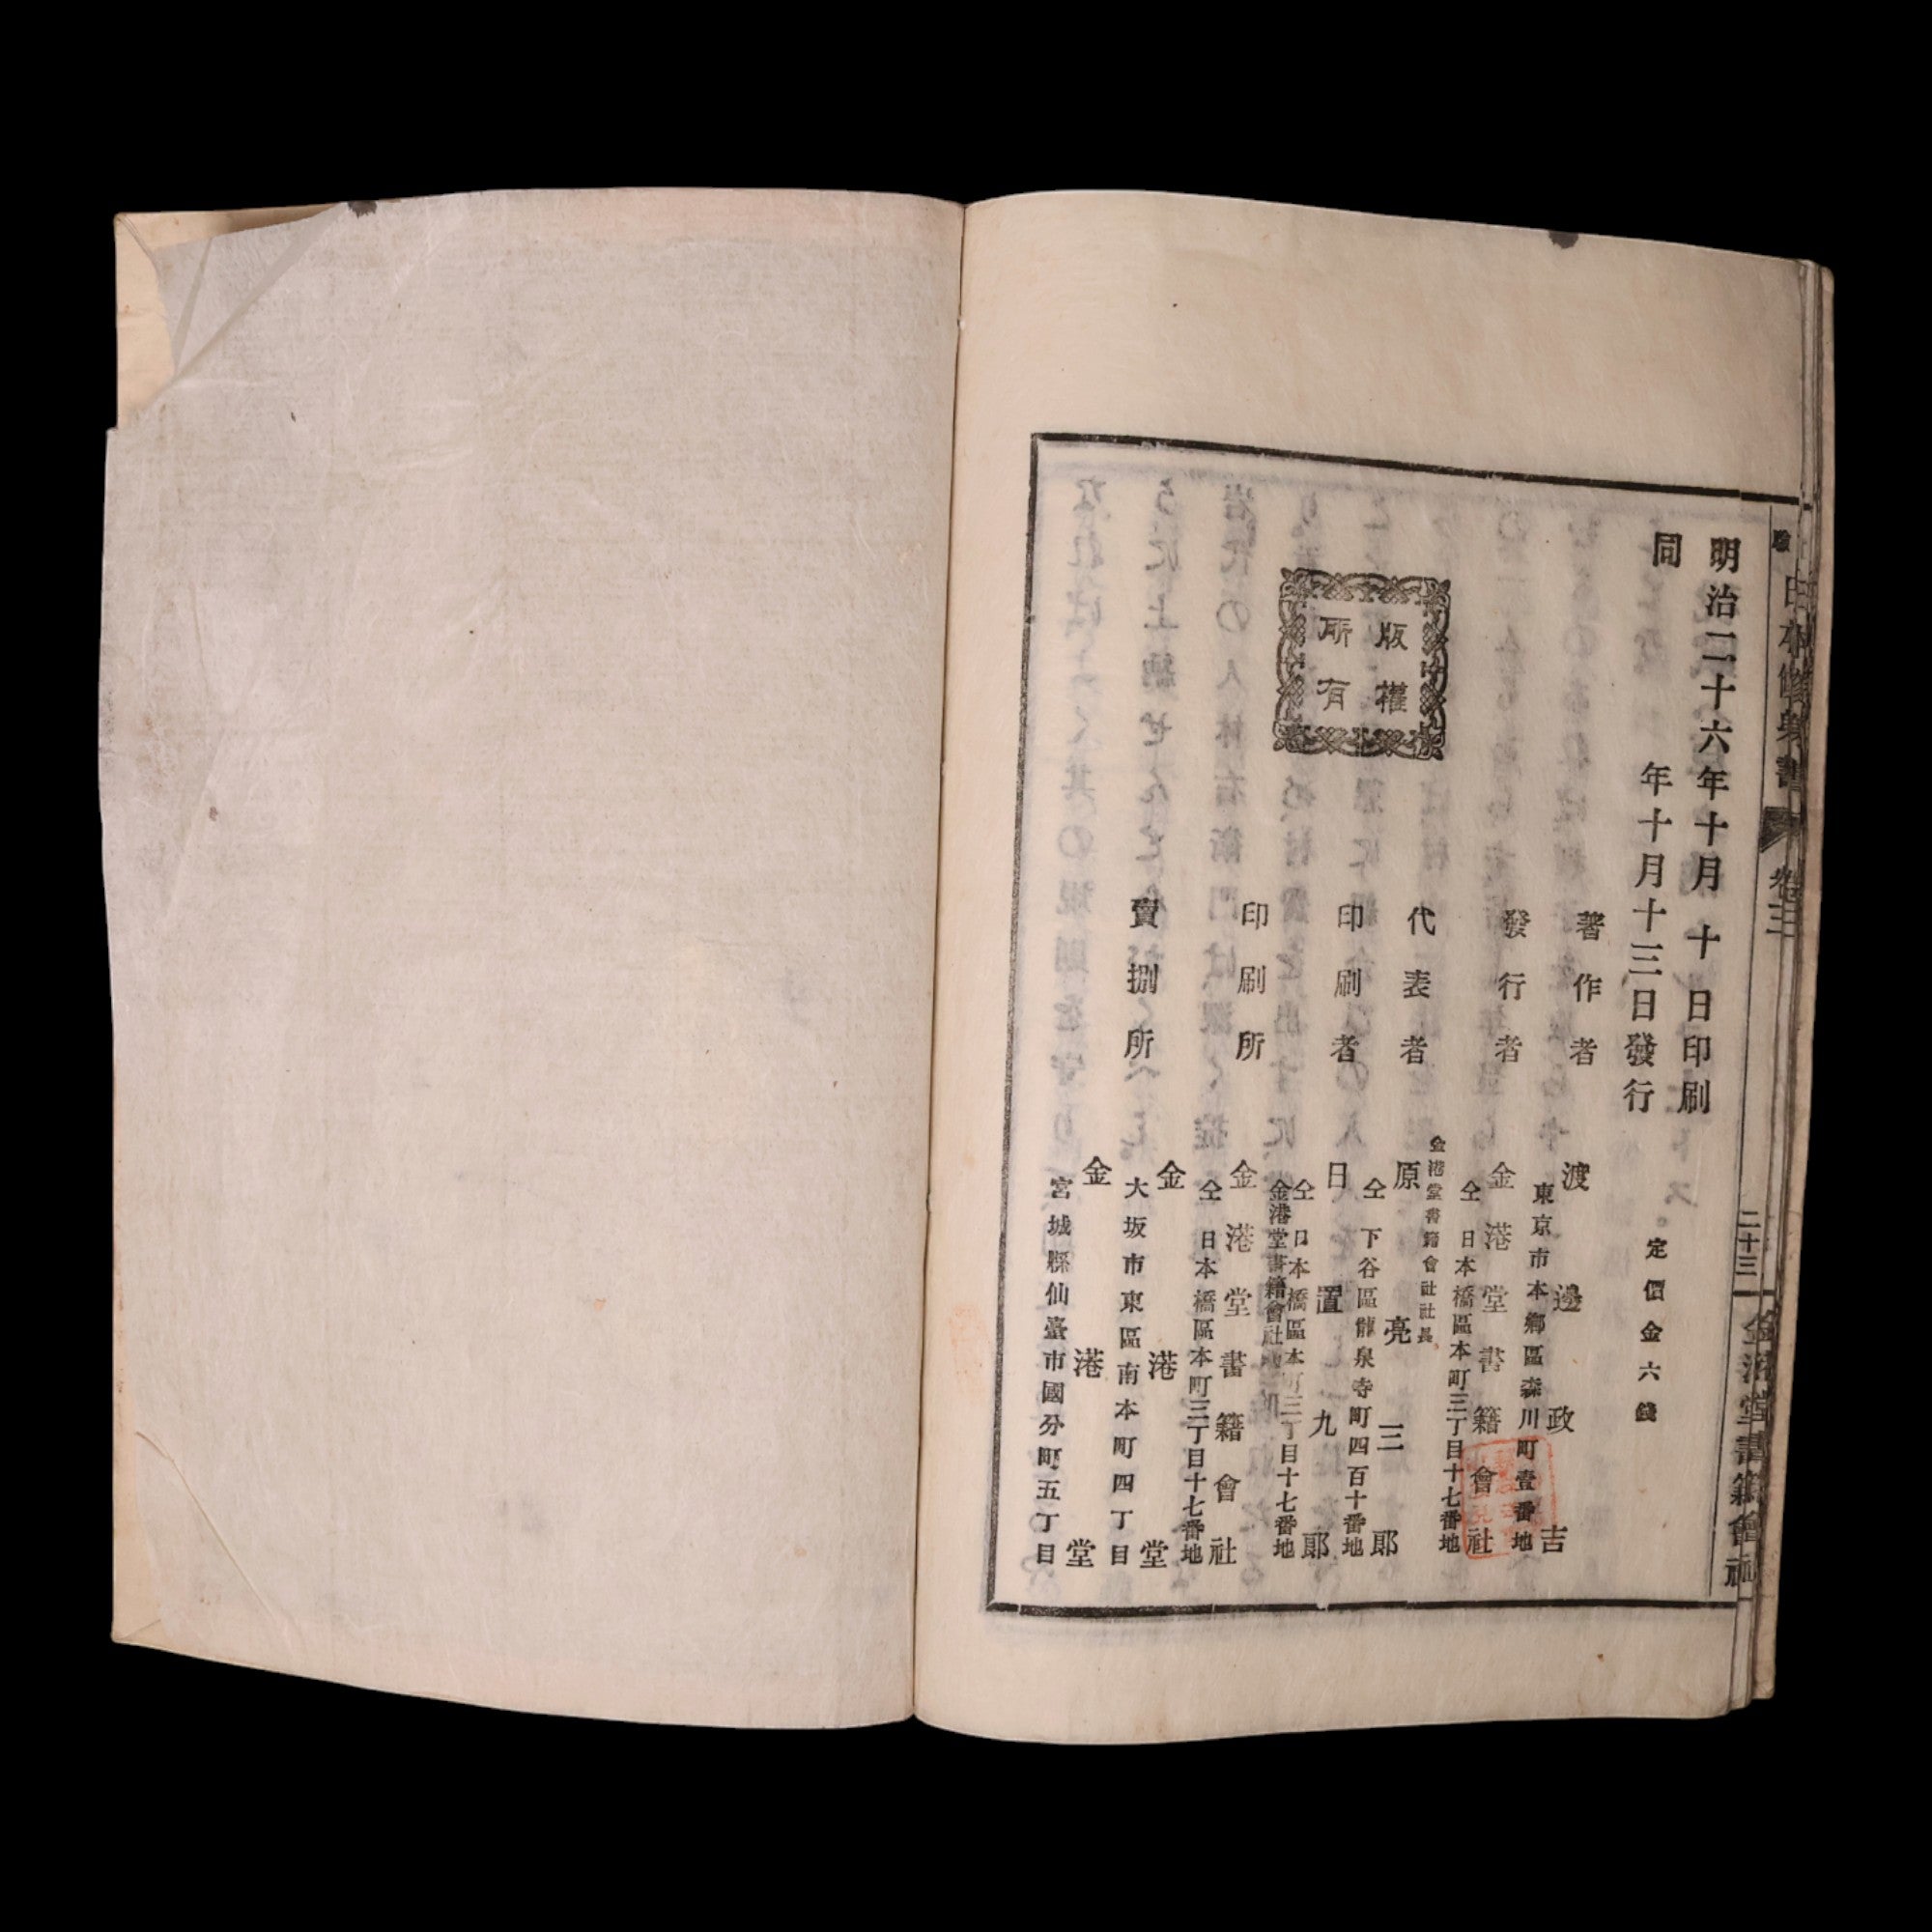 日本修身書
卷三
二十三
金港堂書籍會社
明治二十六年十月十日印刷
同年十月十三日發行
定價金六錢
版權所有
著作者
渡邊政吉
東京市本鄉區森川町壹番地
發行者
金港堂書籍會社
仝日本橋區本町三丁目十七番地
代表者
金港堂書籍會社社長
原亮三郎
仝下谷區龍泉寺町四百十番地
印刷者
日置九郎
仝日本橋區本町三丁目十七番地
金港堂書籍會社
印刷所
金港堂書籍會社
仝日本橋區本町三丁目十七番地
賣捌所
金港堂
大坂市東區南本町四丁目
金港堂
宮城縣仙臺市國分町五丁目